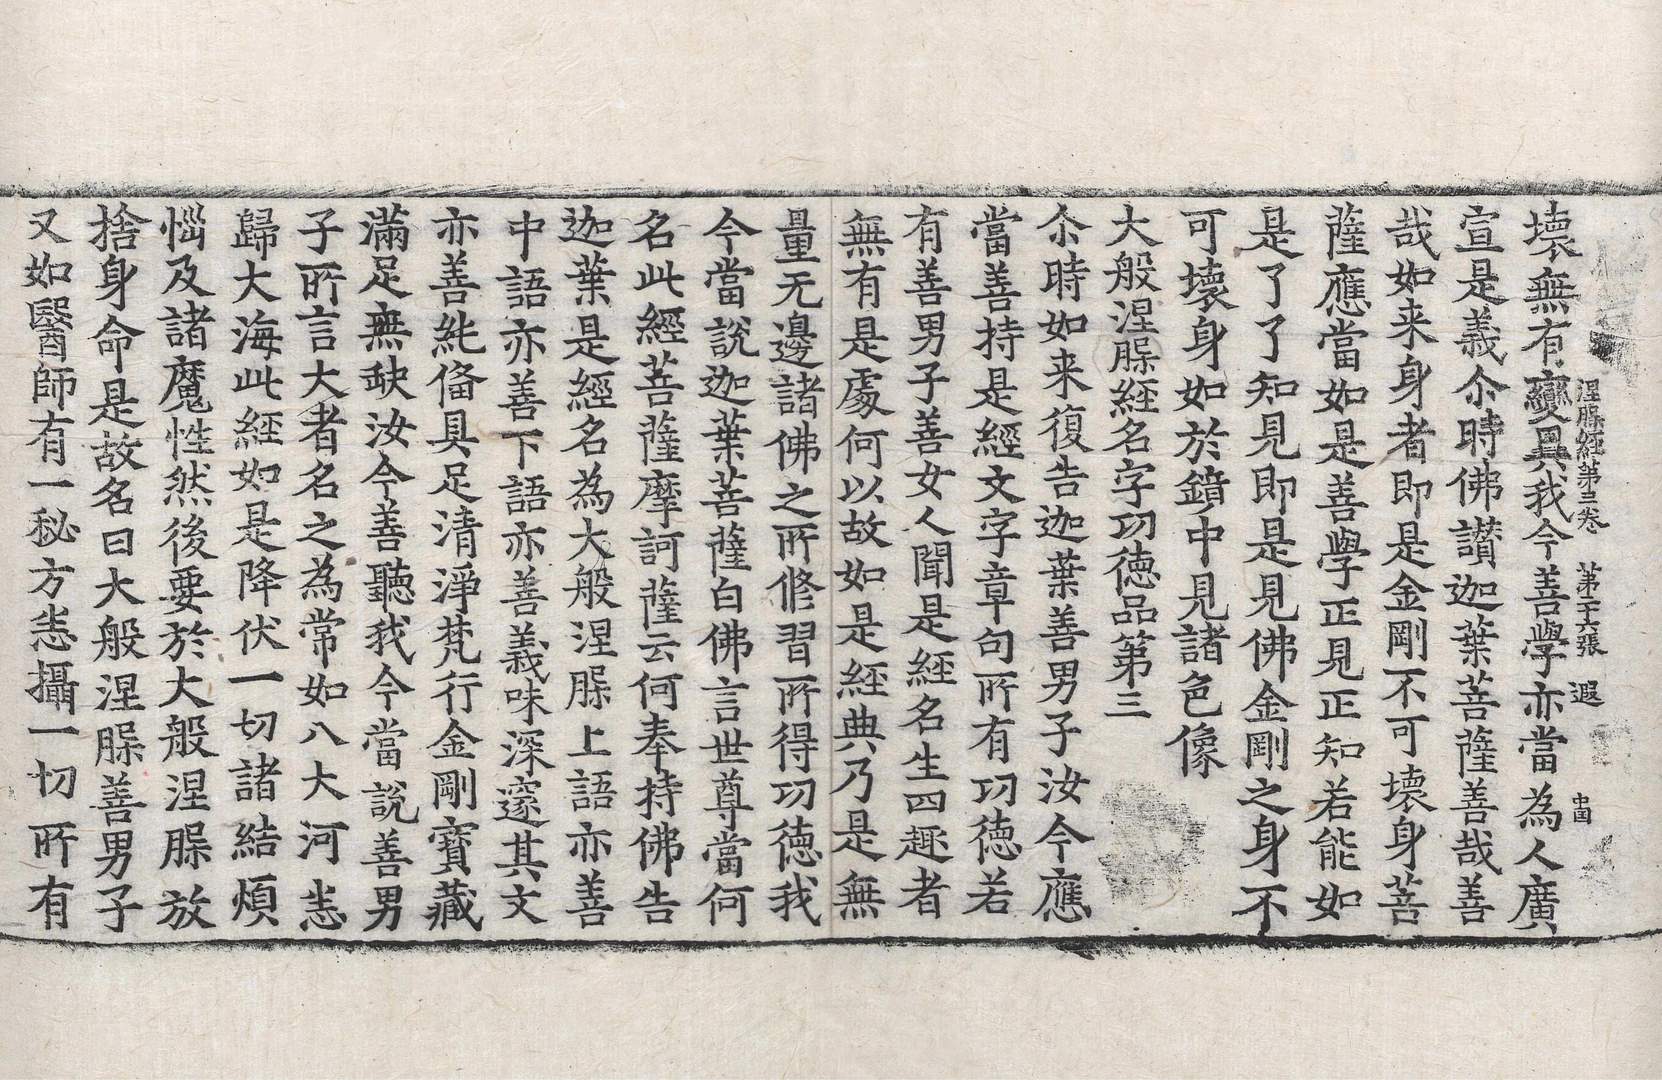 涅槃經第三卷　第二十六張　遐
壞無有變異我今善學亦當為人廣
宣是義尒時佛讃迦葉菩薩善哉善
哉如来身者即是金剛不可壞身菩
薩應當如是善學正見正知若能如
是了了知見即是見佛金剛之身不
可壞身如於鏡中見諸色像
大般涅槃經名字功徳品第三
尒時如来復告迦葉善男子汝今應
當善持是經文字章句所有功徳若
有善男子善女人聞是經名生四趣者
無有是處何以故如是經典乃是無
量无邊諸佛之所修習所得功徳我
今當說迦葉菩薩白佛言世尊當何
名此經菩薩摩訶薩云何奉持佛告
迦葉是經名為大般涅槃上語亦善
中語亦善下語亦善義味深邃其文
亦善純俻具足清淨梵行金剛寶藏
滿足無缺汝今善聽我今當說善男
子所言大者名之為常如八大河悉
歸大海此經如是降伏一切諸結煩
惱及諸魔性然後要於大般涅槃放
捨身命是故名曰大般涅槃善男子
又如醫師有一秘方悉攝一切所有